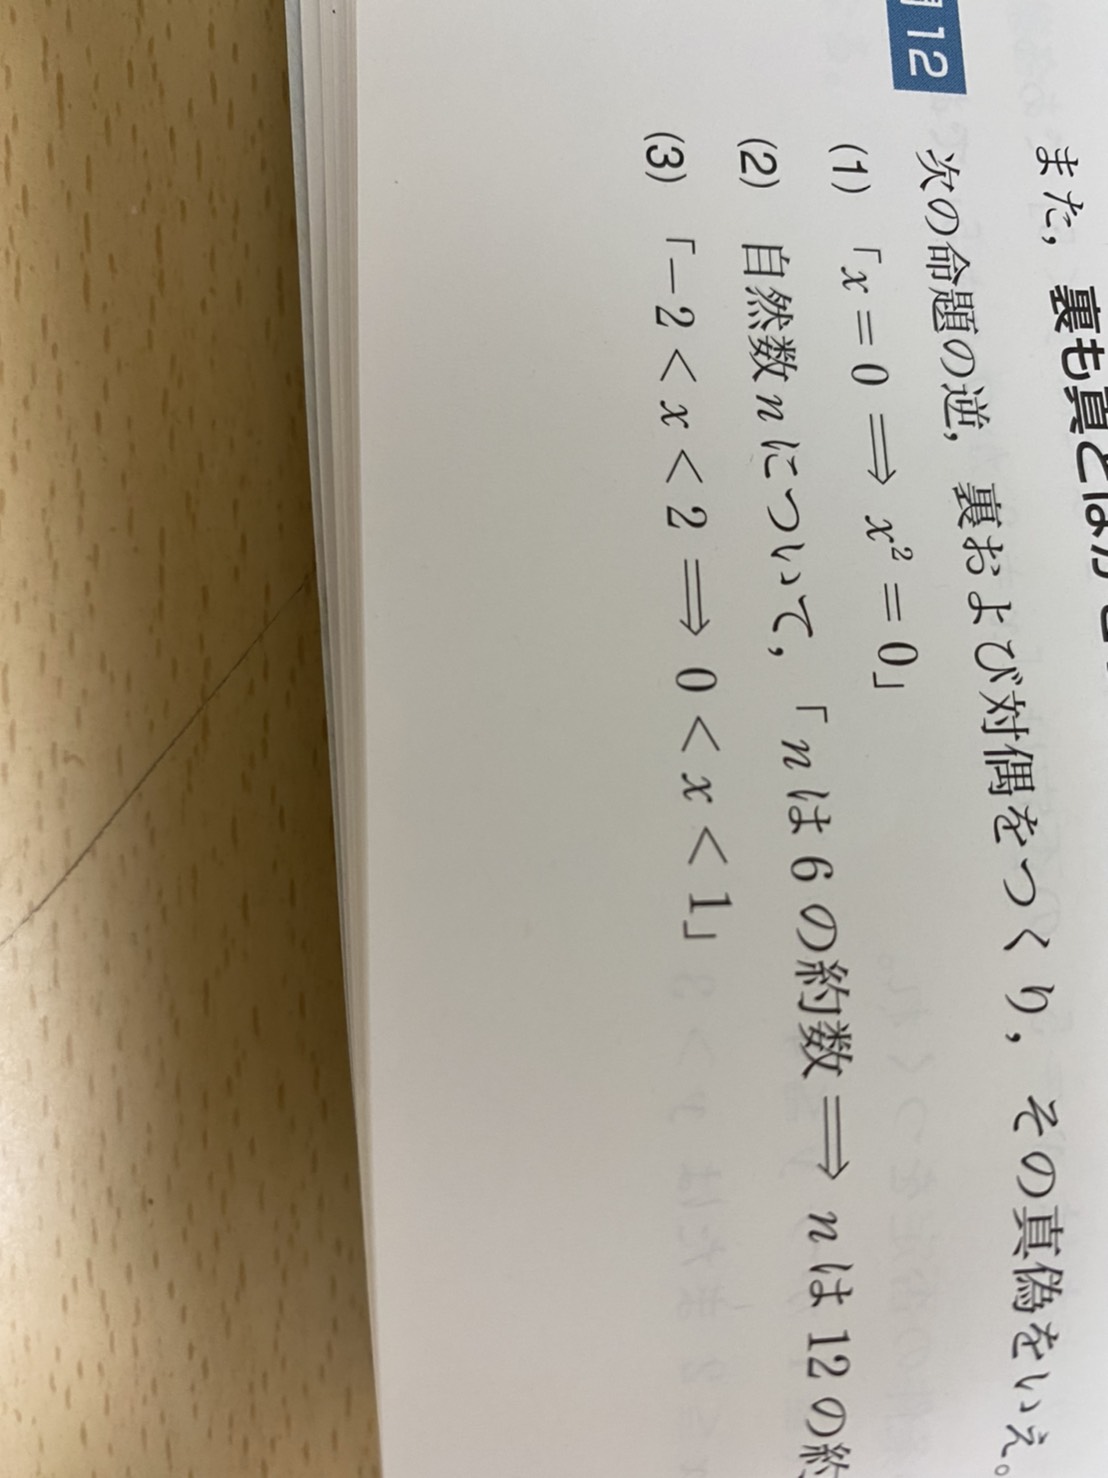 また，裏も真とはか
12 次の命題の逆，裏および対偶をつくり，その真偽をいえ。
(1) 「x = 0 ⟹ x² = 0」
(2) 自然数 n について，「n は 6 の約数 ⟹ n は 12 の約
(3) 「−2 < x < 2 ⟹ 0 < x < 1」